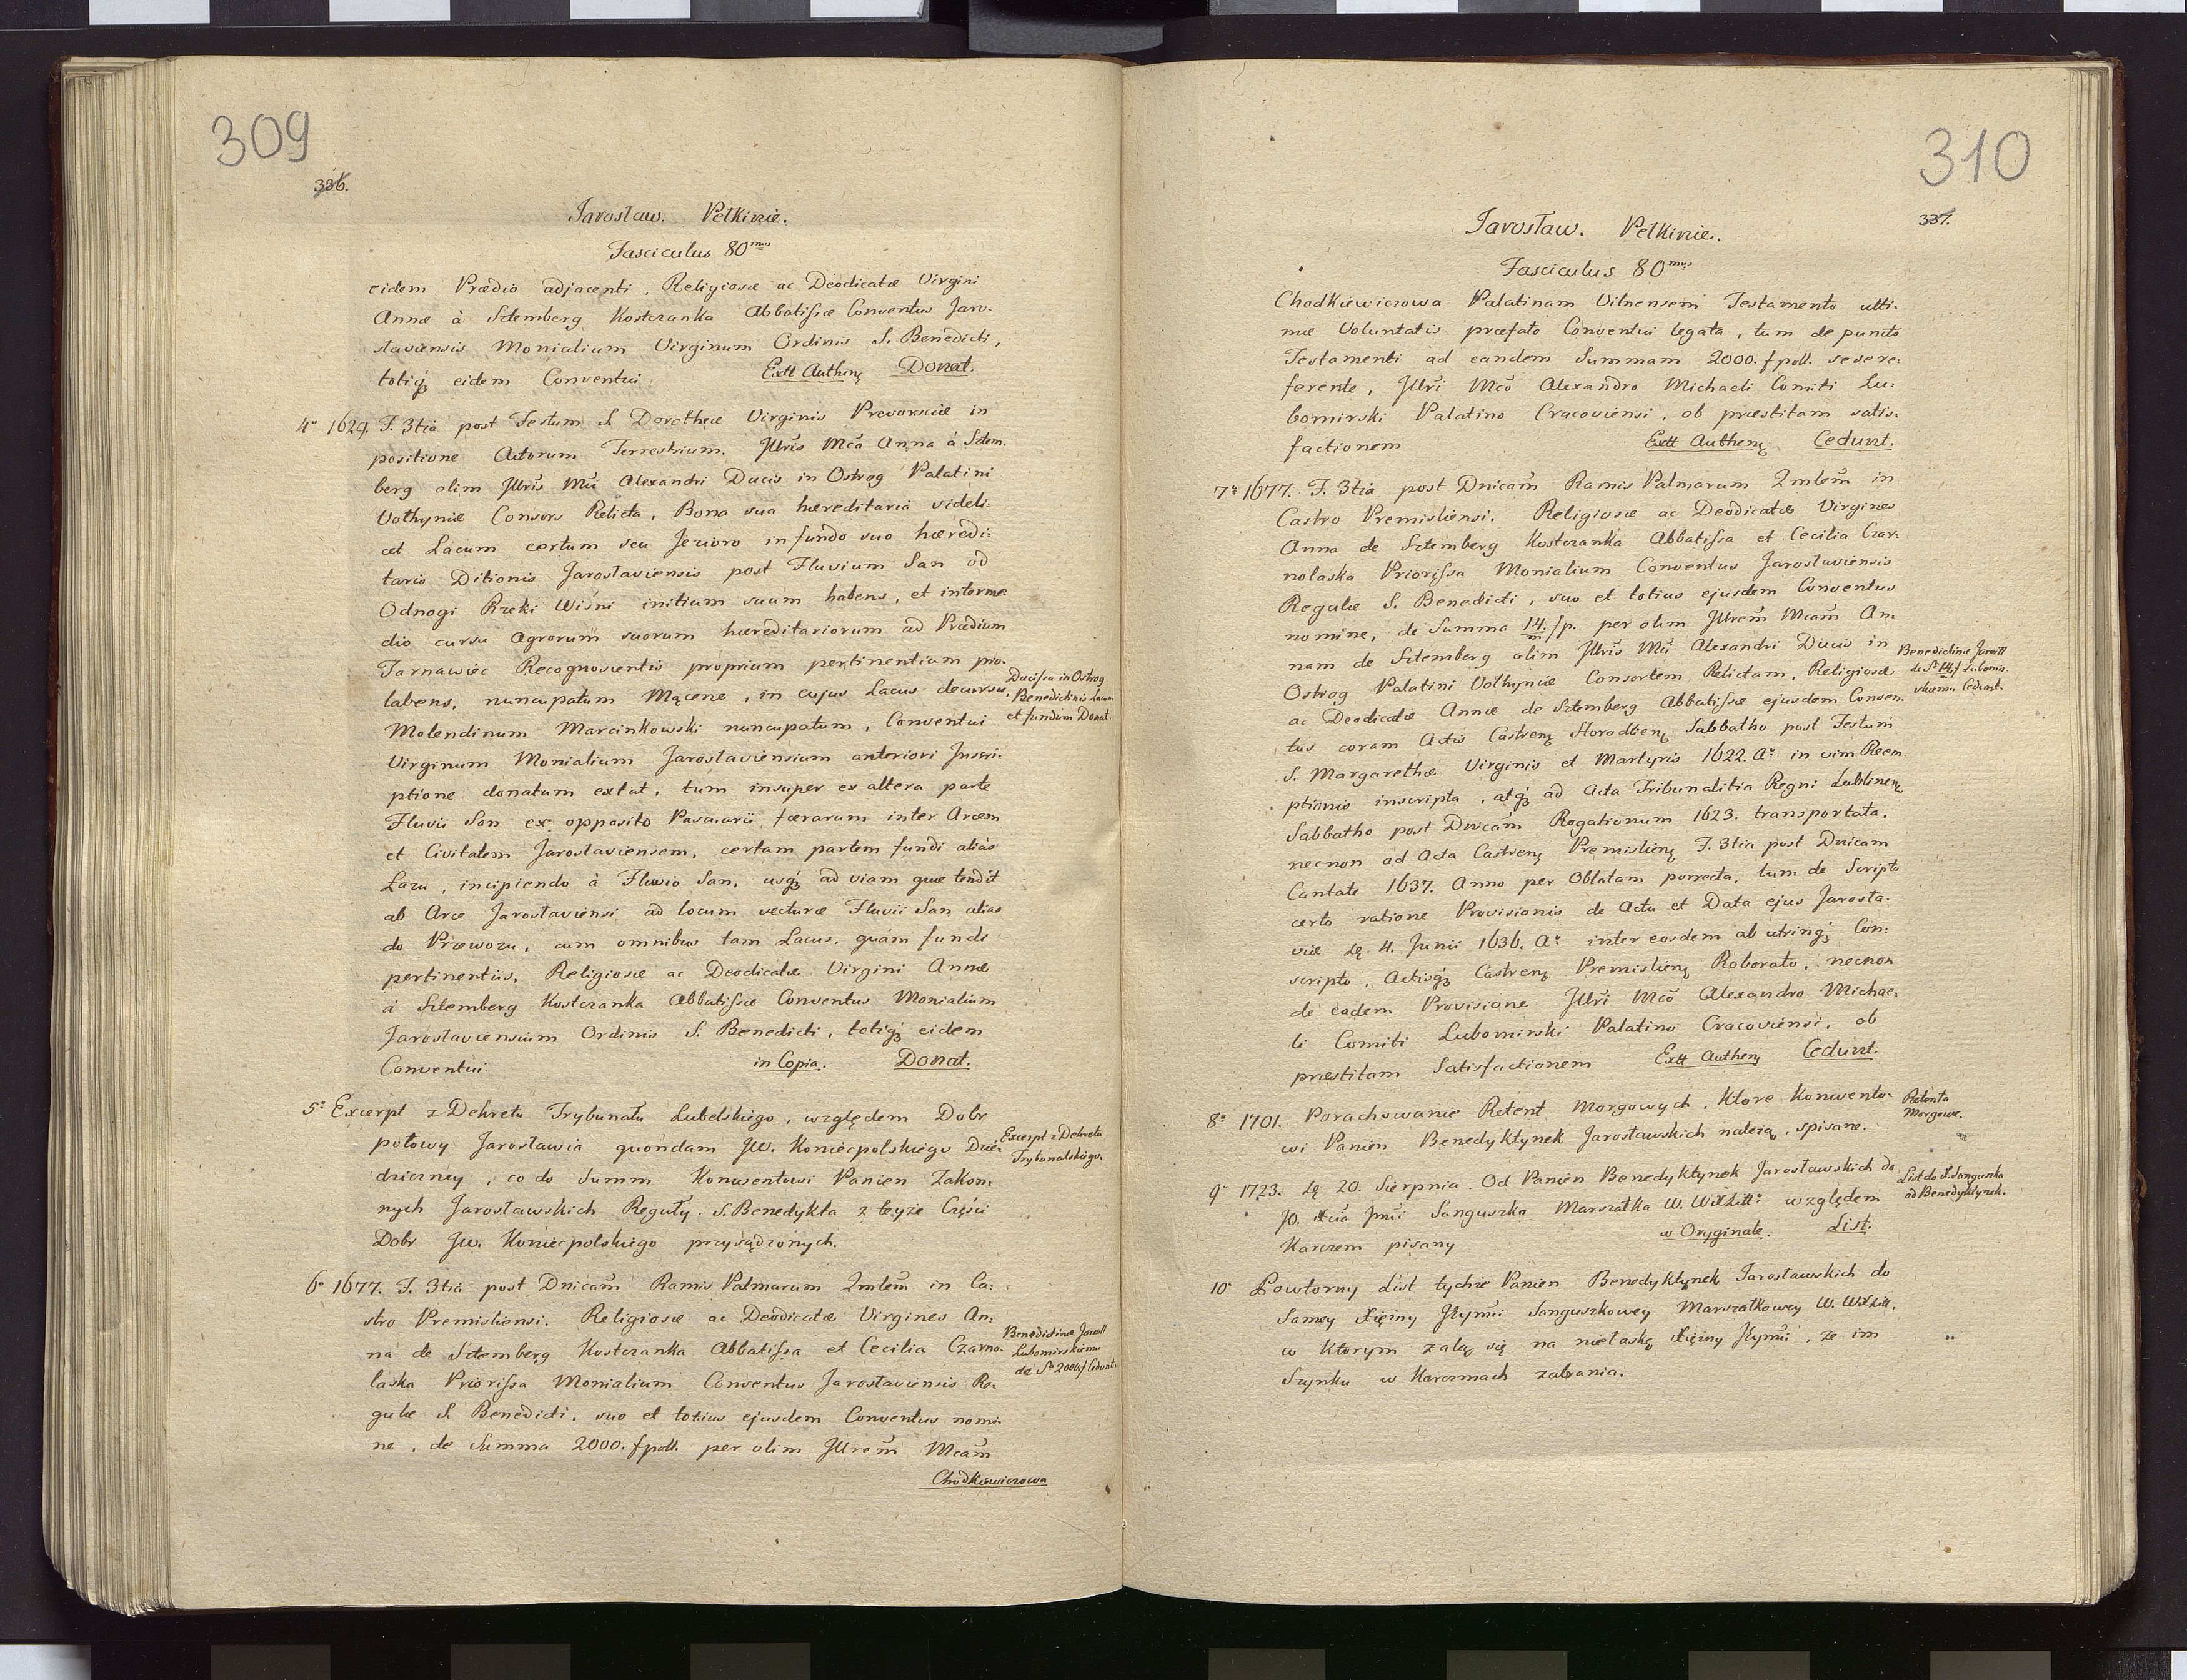 309
336.
Jarosław. Pełkinie.
Fasciculus 80mus
eidem Prædio adjacenti, Religiosæ ac Deodicatæ Virgini
Annæ à Sztemberg Kostczanka Abbatissæ Conventus Jaro-
slaviensis Monialium Virginum Ordinis S. Benedicti,
totiq́ꝫ eidem Conventui Extt Authenꝫ Donat.
4o 1629. F. 3tia post Festum S. Dorotheæ Virginis Prevorsciæ in
positione Actorum Terrestrium. Jllris Mca Anna à Sztem-
berg olim Jllris Mci Alexandri Ducis in Ostrog Palatini
Volhyniæ Consors Relicta, Bona sua hæreditaria videli-
cet Lacum certum seu Jezioro in fundo suo hæredi-
tario Ditionis Jaroslaviensis post Fluvium San od
Odnogi Rzeki Wiśni initium suum habens, et interme
dio cursu agrorum suorum hæreditariorum ad Prædium
Tarnawiec Recognoscentis proprium pertinentium pro-
labens, nuncupatum Mącene, in cujus Lacus decursu,
Molendinum Marcinkowski nuncupatum, Conventui
Virginum Monialium Jaroslaviensium anteriori Inscri-
ptione donatum extat, tum insuper ex altera parte
Fluvii San ex opposito Pascuarii, færarum inter Arcem
et Civitatem Jaroslaviensem, certam partem fundi alias
Łazu, incipiendo à Fluvio San, usq́ꝫ ad viam quæ tendit
ab Arce Jaroslaviensi ad locum vecturæ Fluvii San alias
do Przewozu, cum omnibus tam Lacus, quàm fundi
pertinentiis, Religiosæ ac Deodicatæ Virgini Annæ
à Sztemberg Kostczanka Abbatissæ Conventus Monialium
Jaroslaviensium Ordinis S. Benedicti, totiq́ꝫ eidem
Conventui in Copia. Donat.
Ducissa in Ostrog
Benedictinis Lacum
et fundum Donat.
5o Excerpt z Dekretu Trybunału Lubelskiego, względem Dobr
połowy Jarosławia quondam JW. Koniecpolskiego Dzie-
dziczney, co do Summ Konwentowi Panien Zakon-
nych Jarosławskich Reguły S. Benedykta z teyże Części
Dobr JW. Koniecpolskiego przysądzonych.
Excerpt z Dekretu
Trybunalskiego.
6o 1677. F. 3tia post Dnicam Ramis Palmarum 2mlem in Ca-
stro Premisliensi. Religiosæ ac Deodicatæ Virgines An-
na de Sztemberg Kostczanka Abbatissa et Cecilia Czarno-
laska Priorissa Monialium Conventus Jaroslaviensis Re-
gulæ S. Benedicti, suo et totius ejusdem Conventus nomi-
ne, de Summa 2000. fpoll. per olim Jllrem Mcam
Chodkiewiczowa
Benedictinæ Jarosll
Lubomirskiemu
de Sa 2000 f Cedunt.
310
337.
Jarosław. Pełkinie.
Fasciculus 80mus
Chodkiewiczowa Palatinam Vilnensem Testamento ulti-
mæ Voluntatis præfato Conventui legata, tum de puncto
Testamenti ad eandem Summam 2000. fpoll. se se re-
ferente, Jllri Mco Alexandro Michaeli Comiti Lu-
bomirski Palatino Cracoviensi, ob præstitam satis-
factionem Extt Authenꝫ Cedunt.
7o 1677. F. 3tia post Dnicam Ramis Palmarum 2mlem in
Castro Premisliensi. Religiosæ ac Deodicatæ Virgines
Anna de Sztemberg Kostczanka Abbatissa et Cecilia Czar-
nolaska Priorissa Monialium Conventus Jaroslaviensis
Regulæ S. Benedicti, suo et totius ejusdem Conventus
nomine, de Summa 14./m fp. per olim Jllrem Mcam An-
nam de Sztemberg olim Jllris Mci Alexandri Ducis in
Ostrog Palatini Volhyniæ Consortem Relictam, Religiosæ
ac Deodicatæ Annæ de Sztemberg Abbatissæ ejusdem Conven-
tus coram Actis Castrenꝫ Horodlenꝫ Sabbatho post Festum
S. Margarethæ Virginis et Martyris 1622. Ao in vim Reem-
ptionis inscripta, atq́ꝫ ad Acta Tribunalitia Regni Lublinenꝫ
Sabbatho post Dnicam Rogationum 1623. transportata,
necnon ad Acta Castrenꝫ Premislienꝫ F. 3tia post Dnicam
Cantate 1637. Anno per Oblatam porrecta, tum de Scripto
certo ratione Provisionis de Actu et Data ejus Jarosla-
viæ dę 4. Junii 1636. Ao inter eosdem ab utrinq́ꝫ Con-
scripto, Actisq́ꝫ Castrenꝫ Premislienꝫ Roborato, necnon
de eadem Provisione Jllri Mco Alexandro Michae-
li Comiti Lubomirski Palatino Cracoviensi, ob
præstitam Satisfactionem Extt Authenꝫ Cedunt.
Benedictinæ Jarosll
de Sa 14/m f Lubomir-
skiemu Cedunt.
8o 1701. Porachowanie Retent Morgowych, ktore Konwento-
wi Panien Benedyktynek Jarosławskich należą, spisane.
Retenta
Morgowe.
9o 1723. dę 20. Sierpnia. Od Panien Benedyktynek Jarosławskich do
JO. Xcia Jmci Sanguszka Marszałka W. WXLitto względem
Karczem pisany w Oryginale. List.
List do X. Sanguszka
od Benedyktynek.
10o Powtorny List tychże Panien Benedyktynek Jarosławskich do
Samey Xiężny Jeymci Sanguszkowey Marszałkowey W. WXLitt.
w ktorym żalą się na niełaskę Xiężny Jeymci, że im
Szynku w Karczmach zabrania.